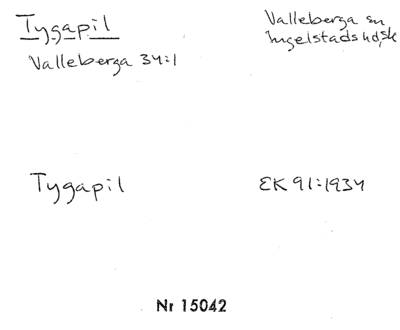 Tygapil
Valleberga 34:1
Valleberga sn
Ingelstads hd, Sk
Tygapil
EK 91:1934
Nr 15042